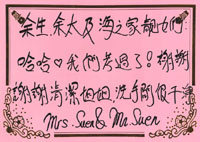 余生、余太及海之家靚女們
哈哈♡我們考過了！謝謝
謝謝清潔姐姐,洗手間很干凈
Mrs Suen & Mr. Suen